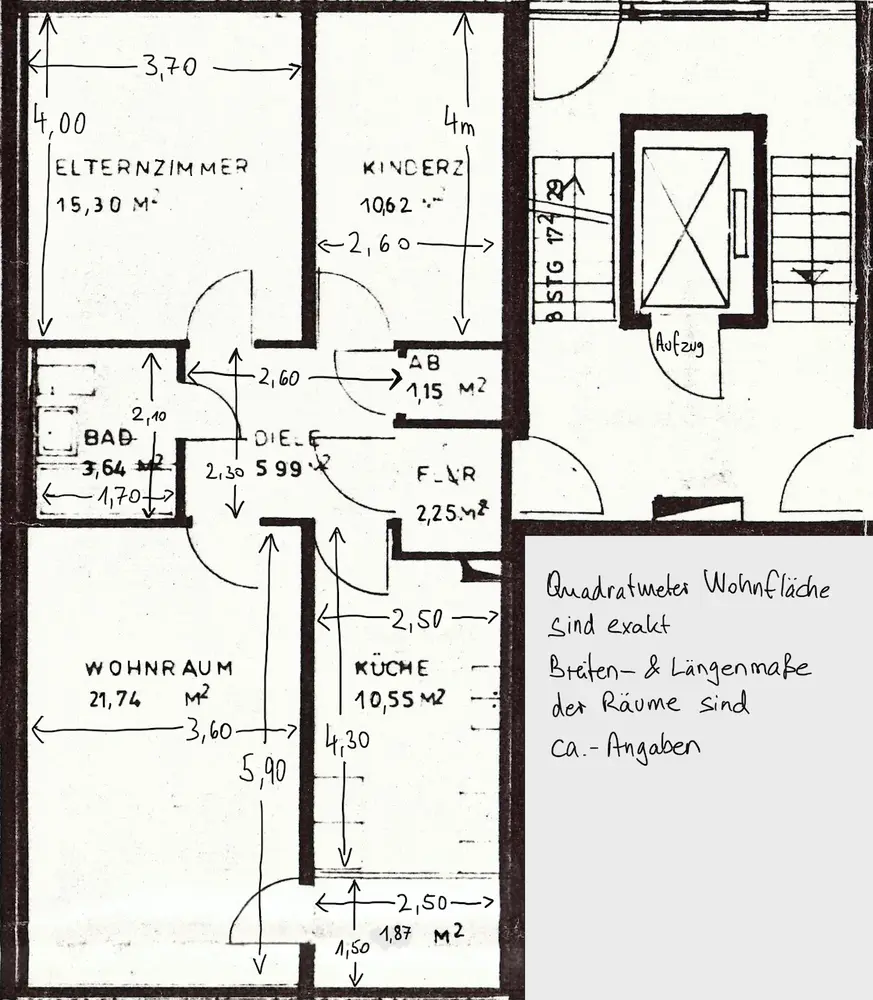 3,70
4,00
ELTERNZIMMER
15,30 M²
4m
KINDERZ
10,62
2,60
8 STG 17² 29
Aufzug
AB
1,15 M²
2,60
2,10
BAD
3,64 M²
1,70
DIELE
2,30
5 99
FLUR
2,25 M²
2,50
WOHNRAUM
21,74 M²
3,60
5,90
KÜCHE
10,55 M²
4,30
2,50
1,87 M²
1,50
Quadratmeter Wohnfläche
sind exakt
Breiten- & Längenmaße
der Räume sind
ca.- Angaben